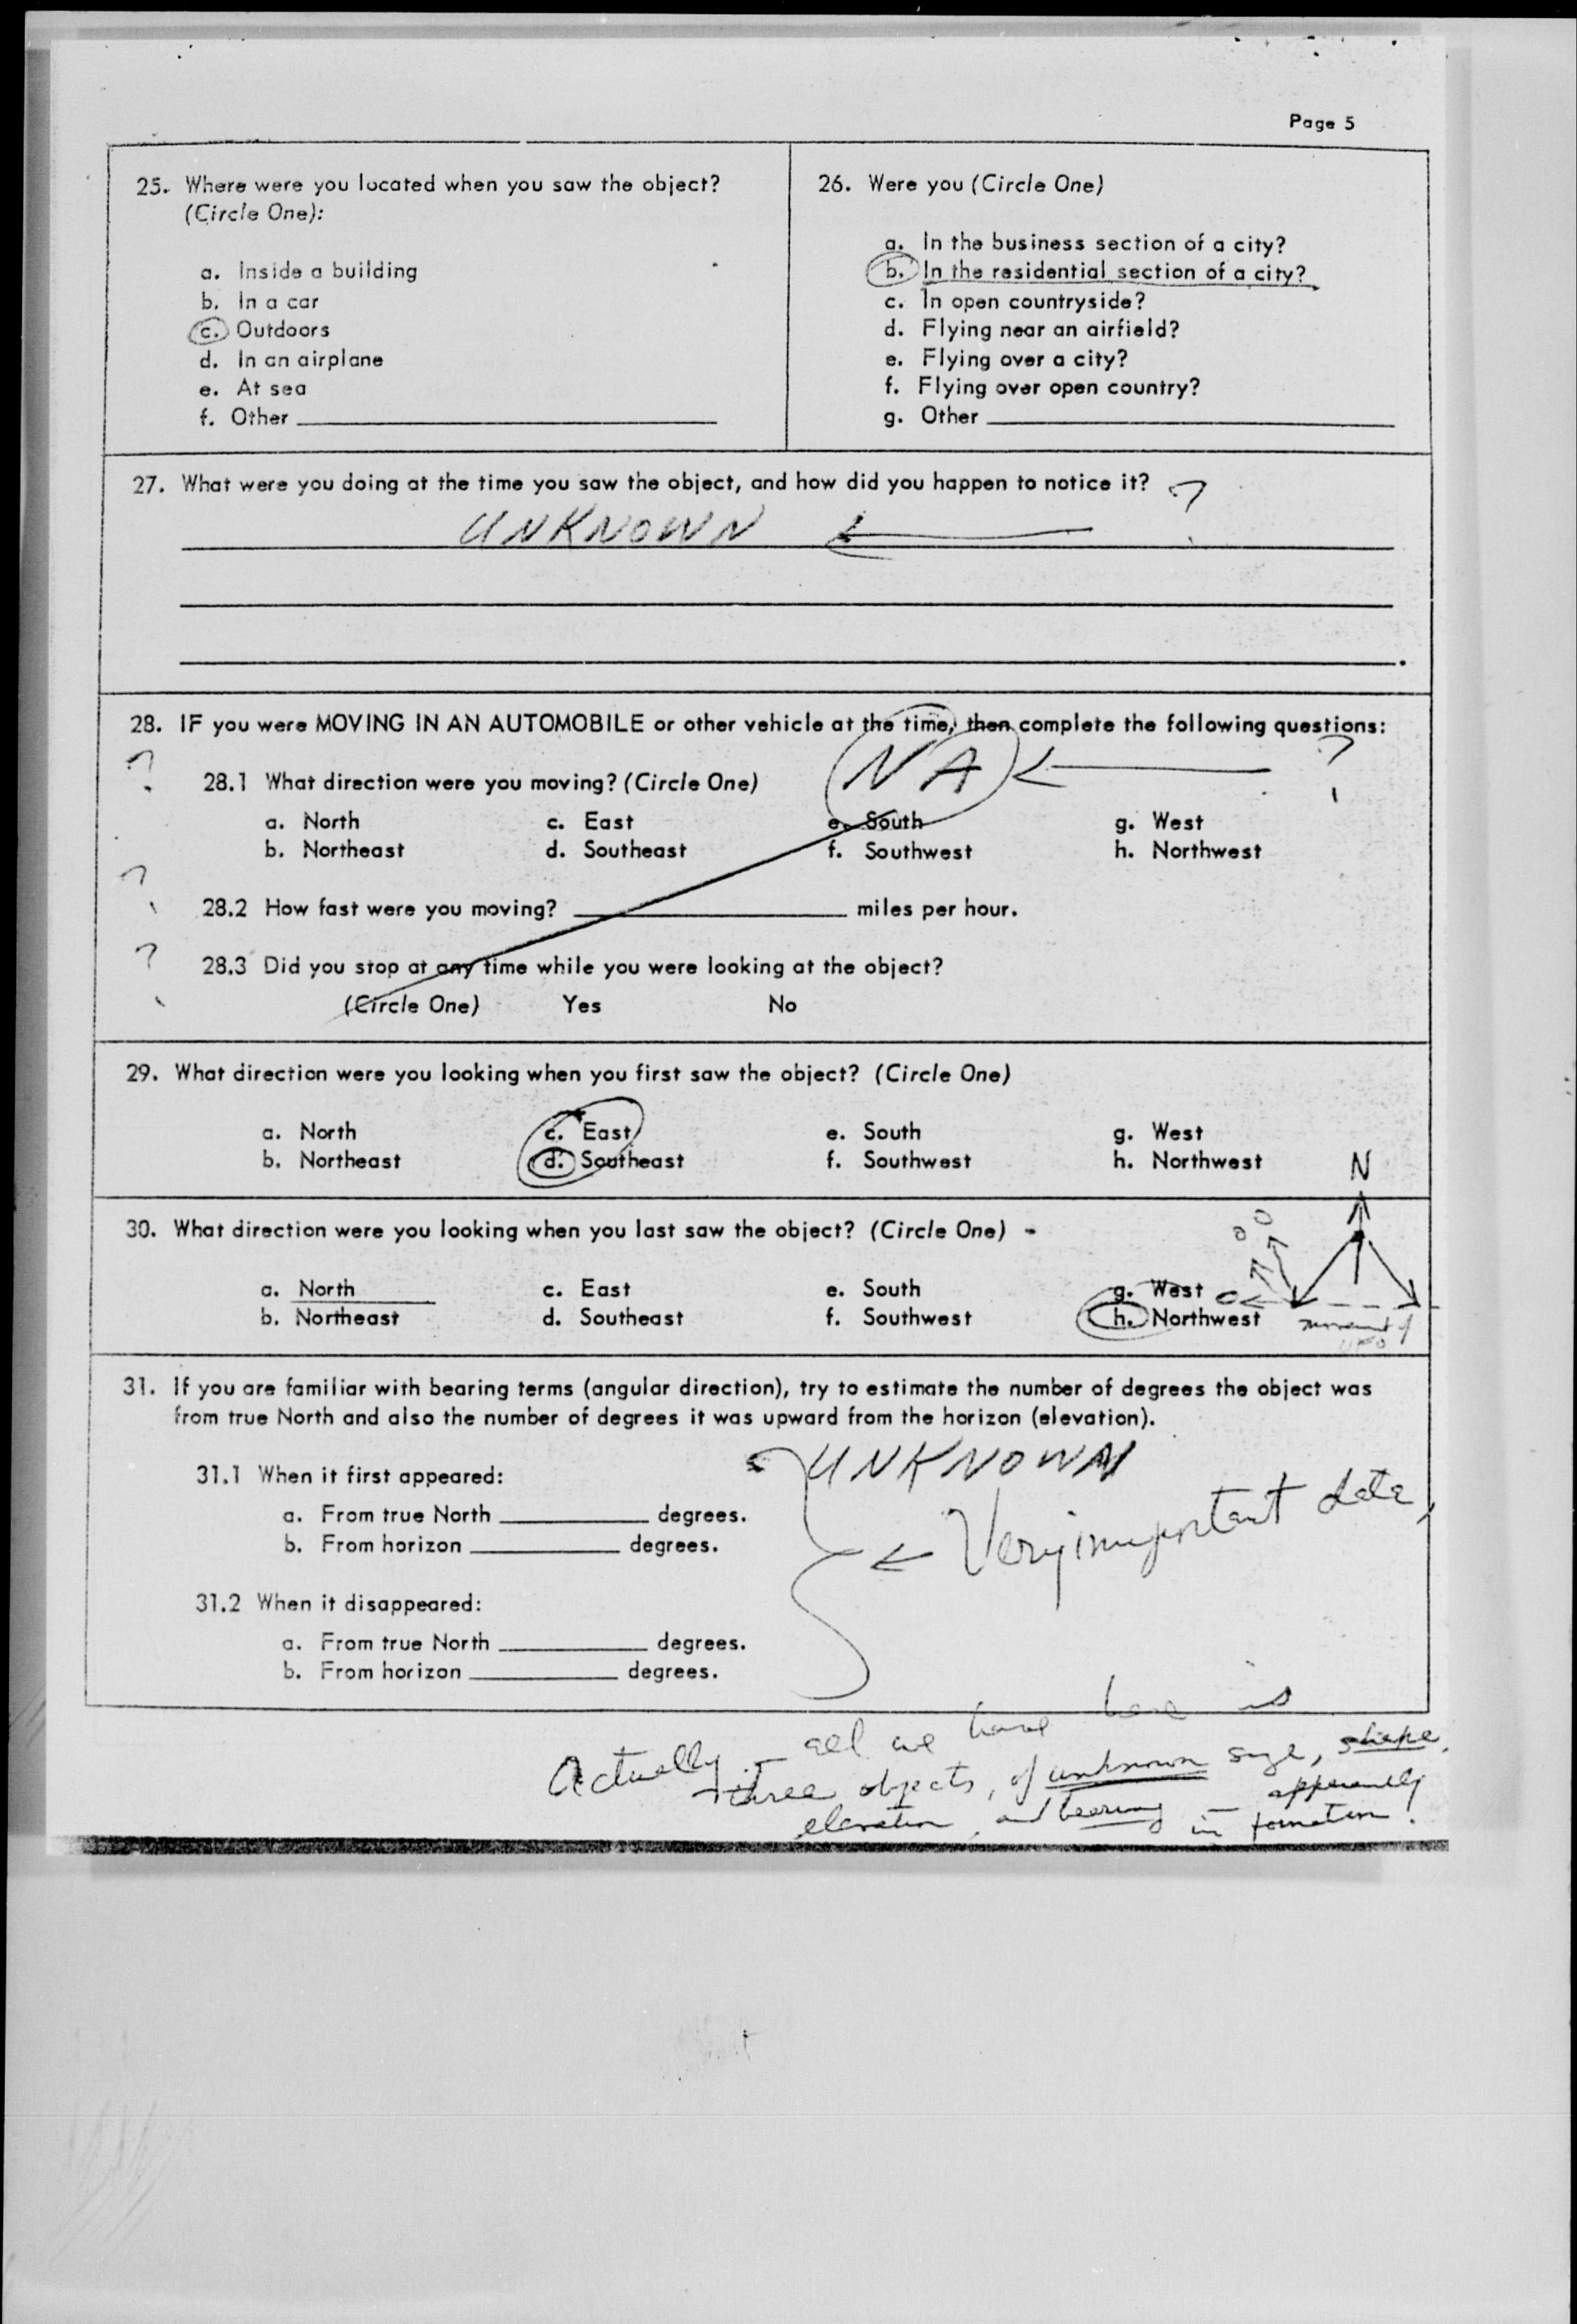 Page 5
25. Where were you located when you saw the object?
(Circle One):
a. Inside a building
b. In a car
c. Outdoors
d. In an airplane
e. At sea
f. Other
26. Were you (Circle One)
a. In the business section of a city?
b. In the residential section of a city?
c. In open countryside?
d. Flying near an airfield?
e. Flying over a city?
f. Flying over open country?
g. Other
27. What were you doing at the time you saw the object, and how did you happen to notice it? ?
UNKNOWN
28. IF you were MOVING IN AN AUTOMOBILE or other vehicle at the time, then complete the following questions:
? NA ?
28.1 What direction were you moving? (Circle One)
a. North c. East e. South g. West
b. Northeast d. Southeast f. Southwest h. Northwest
?
28.2 How fast were you moving? miles per hour.
?
28.3 Did you stop at any time while you were looking at the object?
(Circle One) Yes No
29. What direction were you looking when you first saw the object? (Circle One)
a. North c. East e. South g. West
b. Northeast d. Southeast f. Southwest h. Northwest
N
30. What direction were you looking when you last saw the object? (Circle One) -
a. North c. East e. South g. West
b. Northeast d. Southeast f. Southwest h. Northwest
movement of
UFO
31. If you are familiar with bearing terms (angular direction), try to estimate the number of degrees the object was
from true North and also the number of degrees it was upward from the horizon (elevation).
UNKNOWN
31.1 When it first appeared:
a. From true North degrees.
b. From horizon degrees.
Very important data,
31.2 When it disappeared:
a. From true North degrees.
b. From horizon degrees.
Actually - all we have here is
three objects, of unknown size, shape,
elevation, and bearing - apparently
in formation!